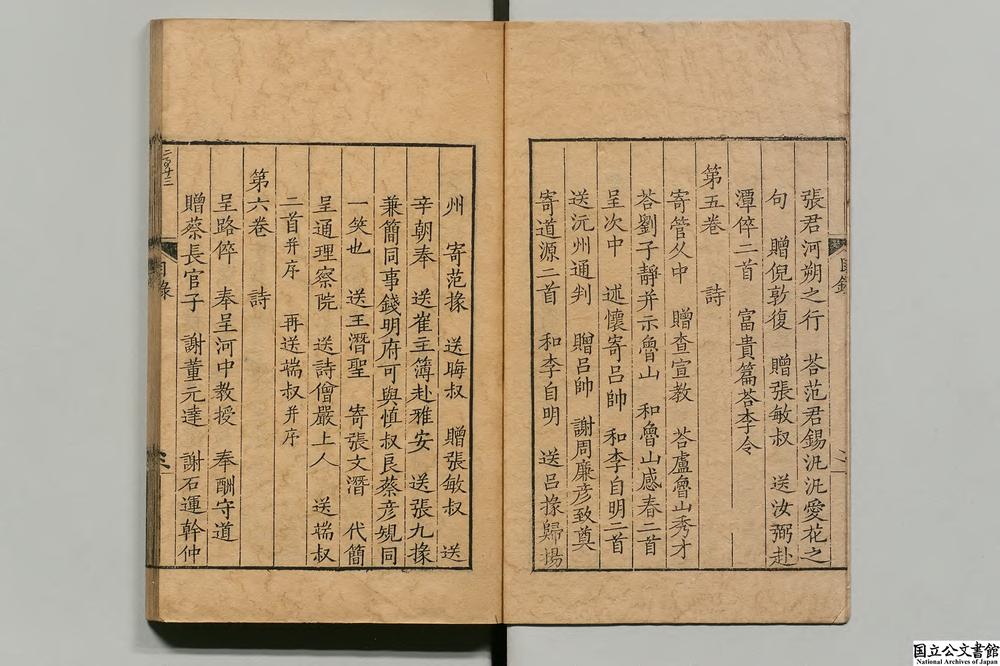 張君河朔之行　荅范君錫氾氾愛花之
句　贈倪敦復　贈張敏叔　送汝弼赴
潭倅二首　富貴篇荅李令
第五卷　詩
寄管久中　贈查宣教　荅盧魯山秀才
荅劉子靜并示魯山　和魯山感春二首
呈次中　述懷寄呂帥　和李自明二首
送沅州通判　贈呂帥　謝周廉彦致奠
寄道源二首　和李自明　送呂掾歸揚
目錄
州　寄范掾　送晦叔　贈張敏叔　送
辛朝奉　送崔主簿赴雅安　送張九掾
兼簡同事錢明府可與愼叔良蔡彦規同
一笑也　送王潛聖　寄張文潛　代簡
呈通理察院　送詩僧嚴上人　送端叔
二首并序　再送端叔并序
第六卷　詩
呈路倅　奉呈河中教授　奉酬守道
贈蔡長官子　謝董元達　謝石運幹仲
目錄
国立公文書館
National Archives of Japan